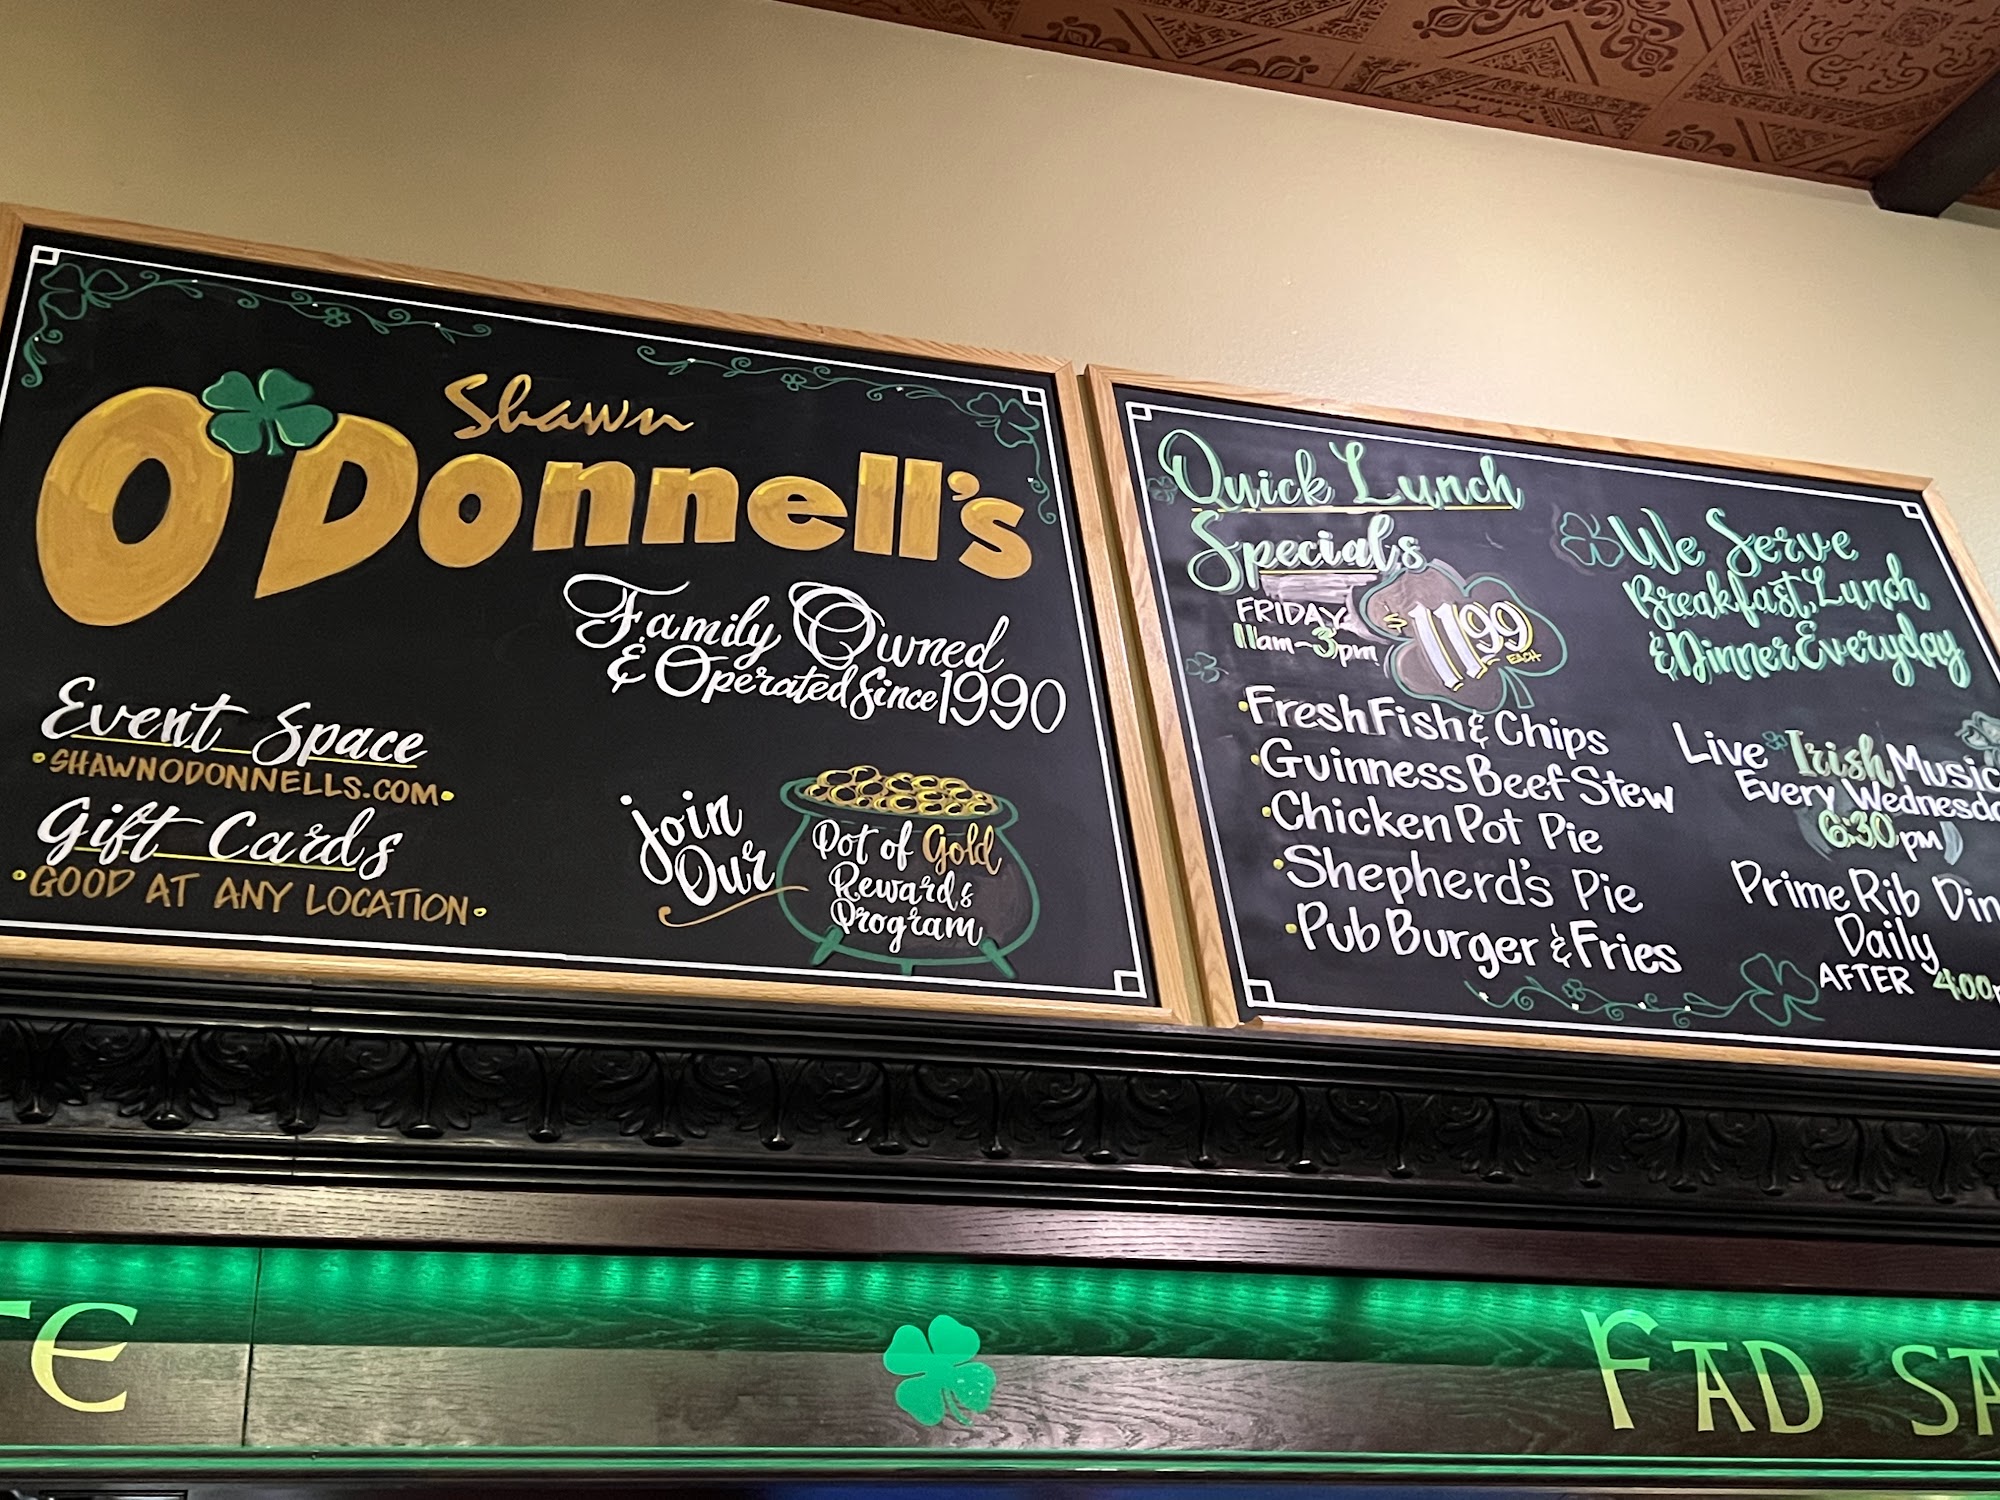 Shawn
O'Donnell's
Family Owned
& Operated Since 1990
Event Space
• SHAWNODONNELLS.COM •
Gift Cards
• GOOD AT ANY LOCATION •
Join
Our
Pot of Gold
Rewards
Program
Quick Lunch
Specials
FRIDAY
11am-3pm
$11.99
EACH
• Fresh Fish & Chips
• Guinness Beef Stew
• Chicken Pot Pie
• Shepherd's Pie
• Pub Burger & Fries
We Serve
Breakfast, Lunch
& Dinner Everyday
Live Irish Music
Every Wednesda
6:30pm
Prime Rib Din
Daily
AFTER 4:00p
TE
FAD SA